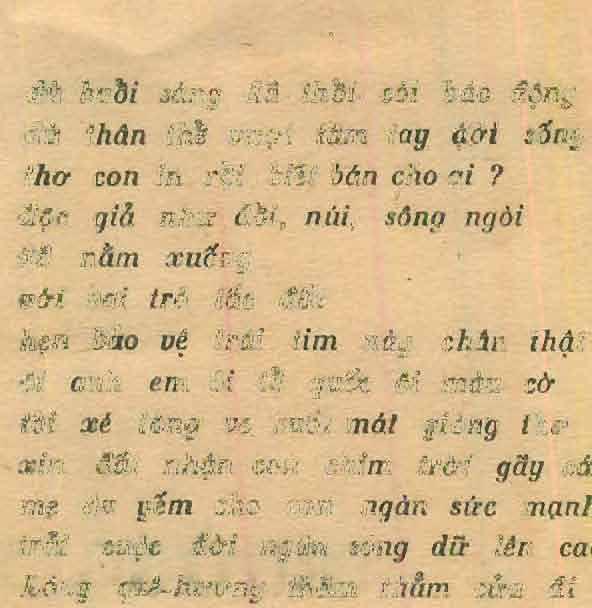 dù buổi sáng đã thổi còi báo động
dù thân thể vượt tầm tay đời sống
thơ con in rồi biết bán cho ai ?
độc giả như đồi, núi, sông ngòi
đã nằm xuống
với vai trò
hẹn bảo vệ trái tim này chân thật
ôi anh em ôi tổ quốc ôi màu cờ
tôi xé lòng ve mát giòng thơ
xin đất nhận con chim trời gãy cá
mẹ dư yếm cho con ngàn sức mạnh
trôi cuộc đời ngàn sóng dữ lên cao
lòng quê-hương thăm thẳm cửa đi